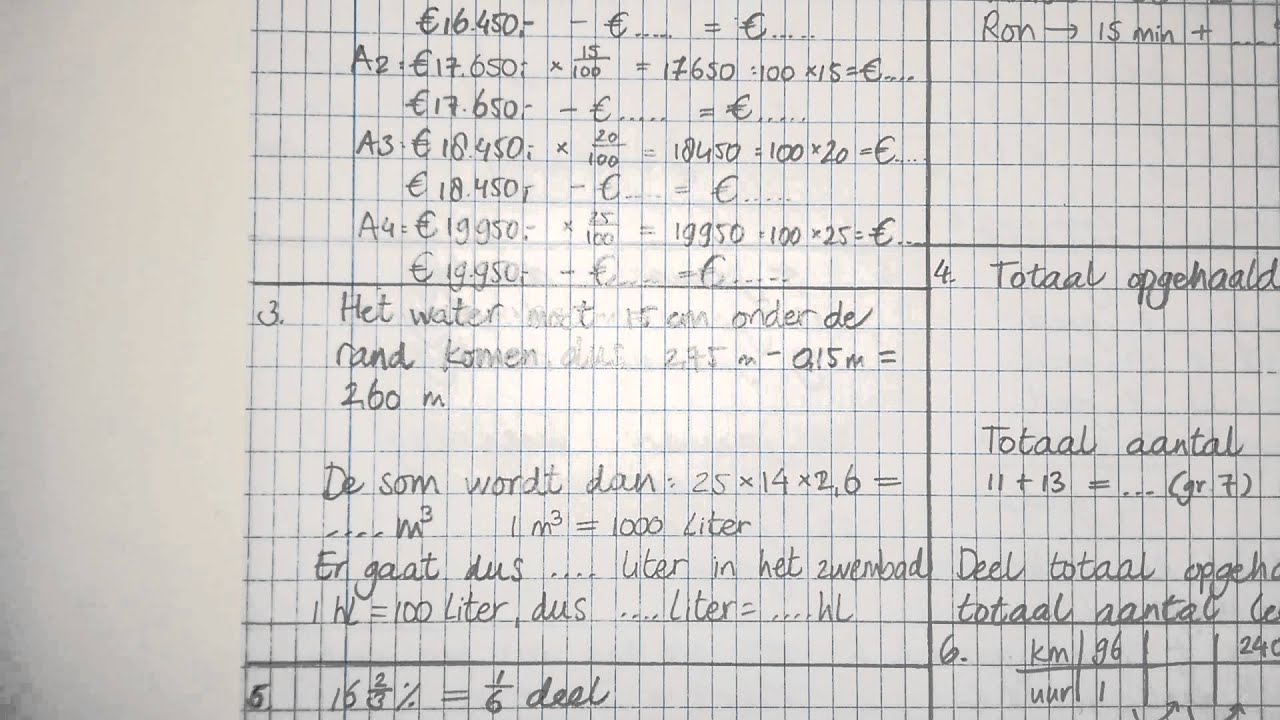 €16.450,- - €..... = €.....
A2: €17.650,- × 15/100 = 17650 :100 ×15=€....
€17.650,- - €..... = €.....
A3: €18.450,- × 20/100 = 18450 :100×20 =€....
€18.450,- - €.... = €.....
A4: €19.950,- × 25/100 = 19950 :100×25=€....
€19.950,- - €.... =€.....
3. Het water moet 15 cm onder de
rand komen dus 2,75 m - 0,15 m =
2,60 m
De som wordt dan: 25×14×2,6 =
..... m³ 1 m³ = 1000 Liter
Er gaat dus .... liter in het zwembad
1 hl =100 Liter, dus ....liter= ....hl
5. 16 2/3 % = 1/6 deel
Ron → 15 min + ....
4. Totaal opgehaald
Totaal aantal
11 + 13 = .... (gr 7)
Deel totaal opgeha
totaal aantal
6. km 96 240
uur 1